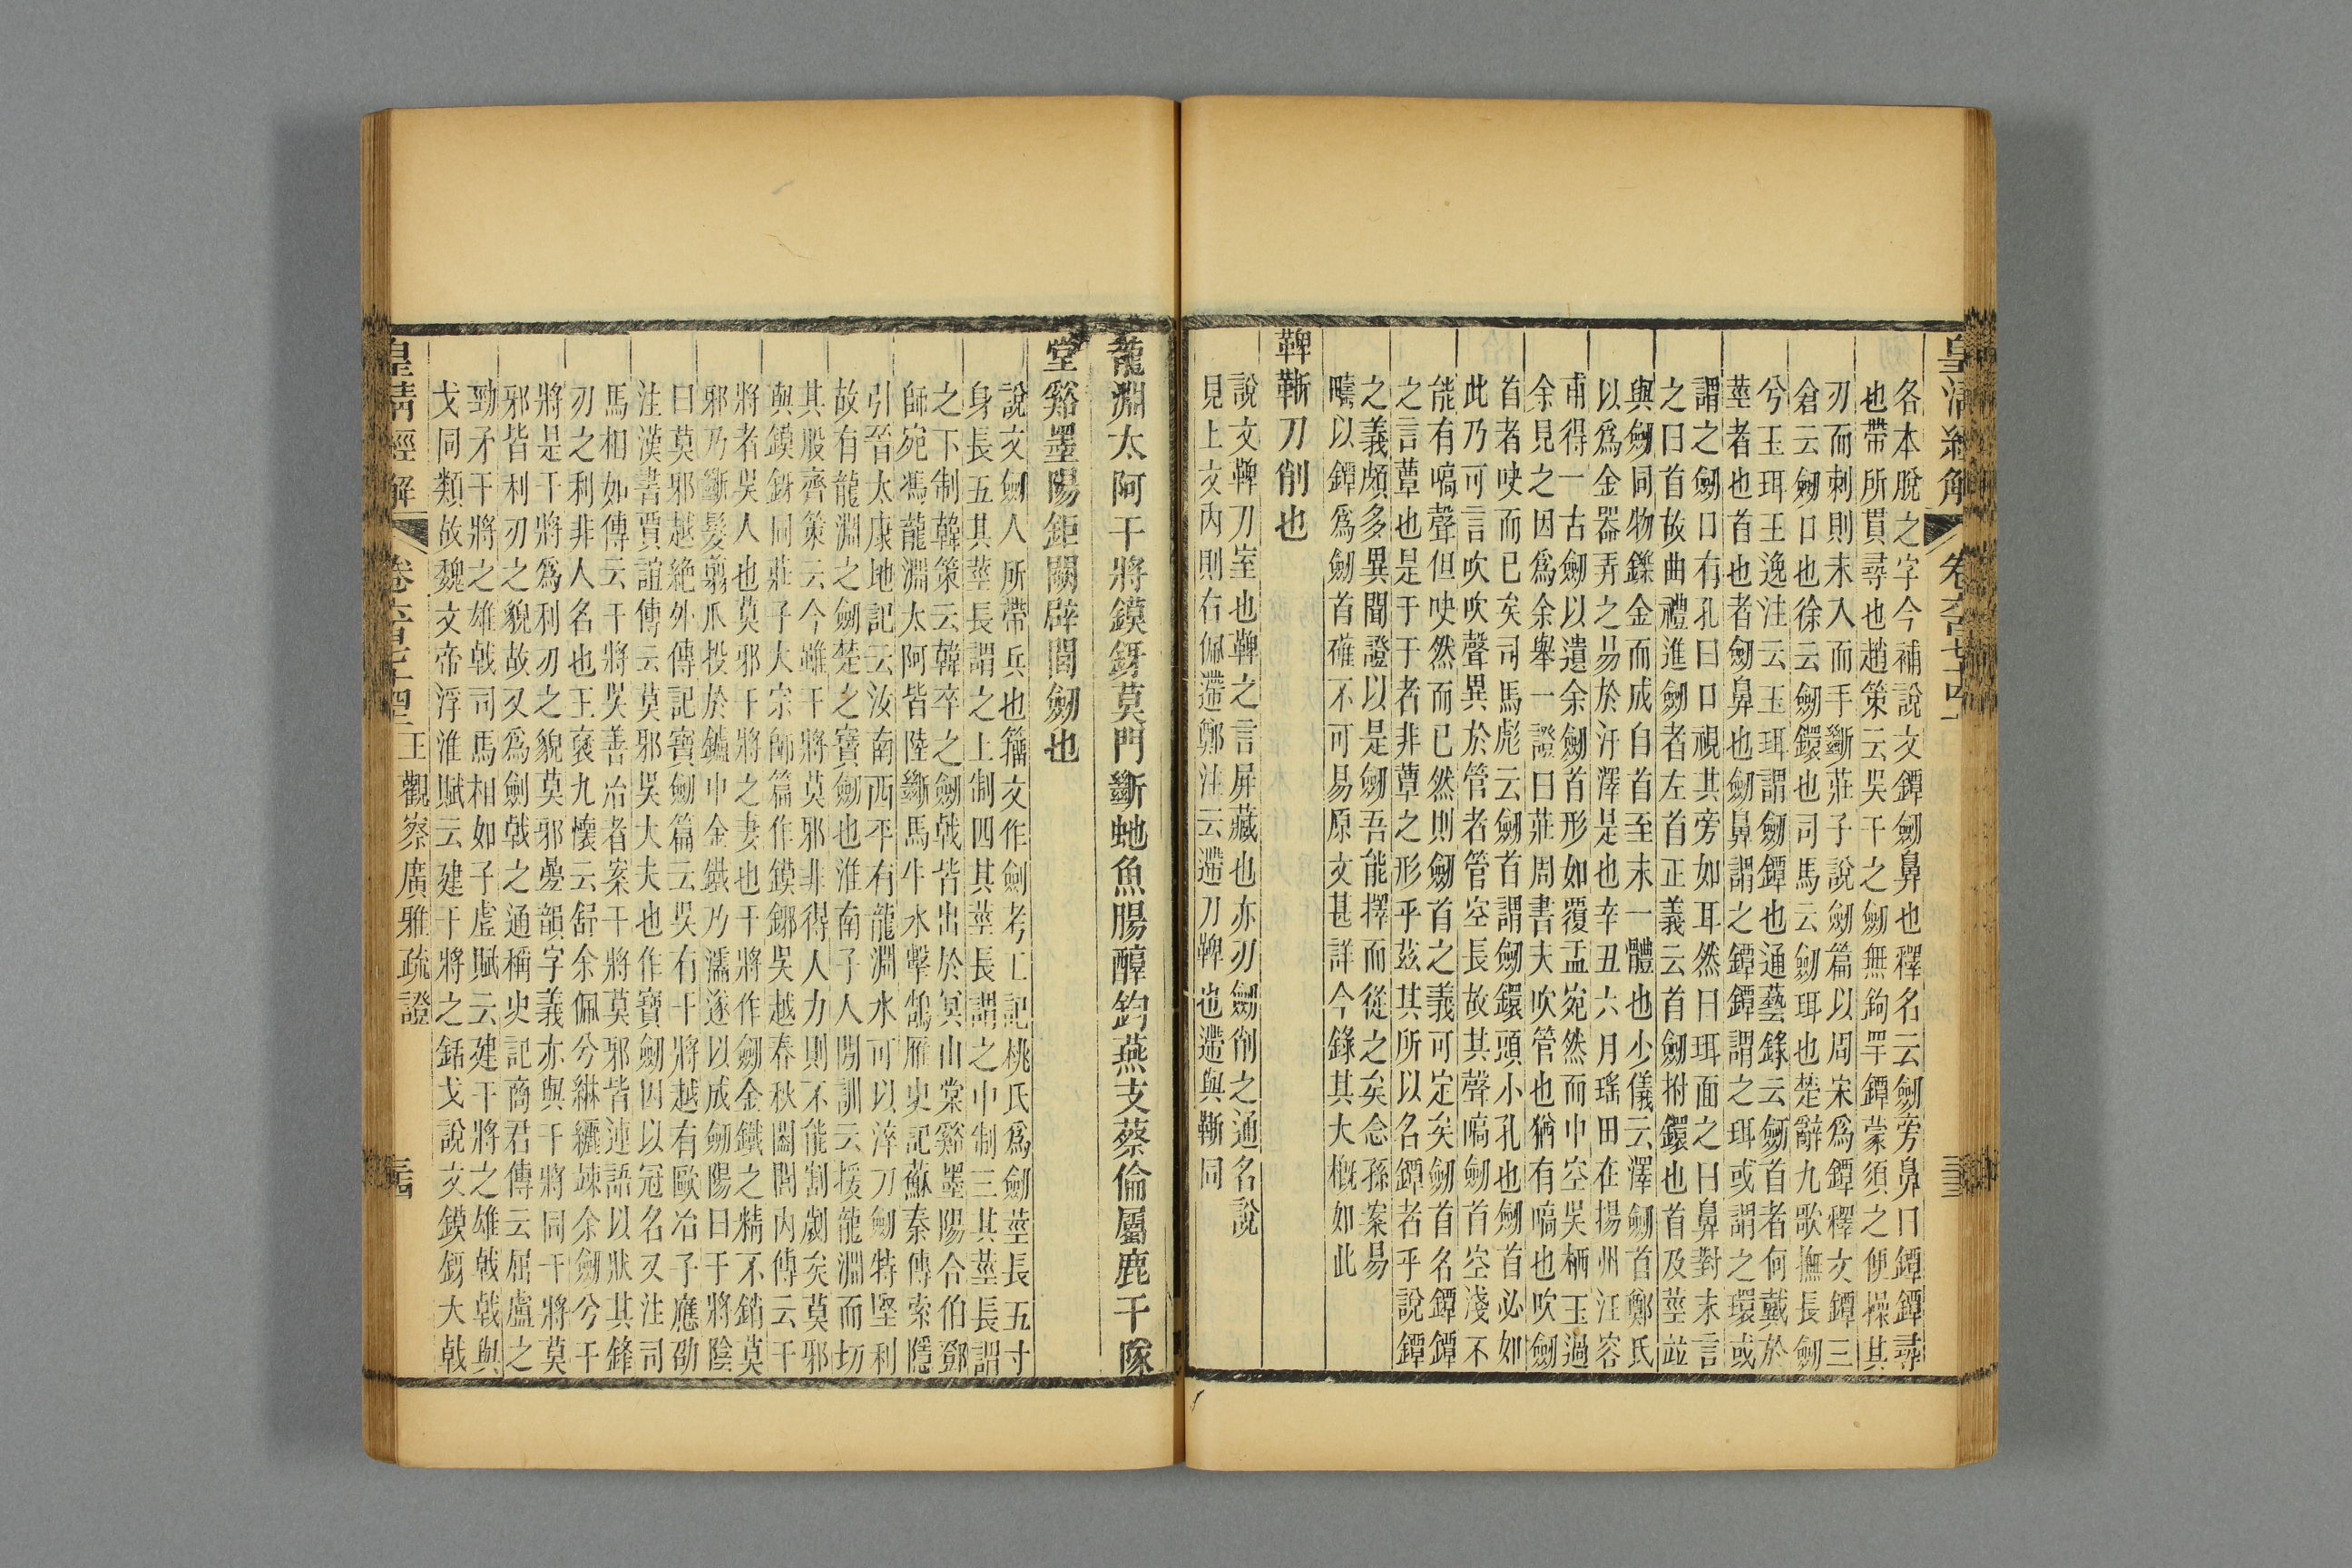 皇清經解
各本脫之字今補說文鐔劒鼻也釋名云劒旁鼻曰鐔鐔尋
也帶所貫尋也趙策云吳干之劒無鉤罕鐔蒙須之便操其
刃而刺則未入而手斷莊子說劒篇以周宋爲鐔釋文鐔三
倉云劒口也徐云劒鐶也司馬云劒珥也楚辭九歌撫長劒
兮玉珥王逸注云玉珥謂劒鐔也通藝錄云劒首者何戴於
莖者也首也者劒鼻也劒鼻謂之鐔鐔謂之珥或謂之環或
謂之劒口有孔曰口視其旁如耳然曰珥面之曰鼻對末言
之曰首故曲禮進劒者左首正義云首劒拊鐶也首及莖竝
與劒同物鑠金而成自首至末一體也少儀云澤劒首鄭氏
以爲金器弄之易於汗澤是也辛丑六月瑤田在揚州汪容
甫得一古劒以遺余劒首形如覆盂宛然而中空吳栖玉過
余見之因爲余舉一證曰莊周書夫吹管也猶有嗃也吹劒
首者吷而已矣司馬彪云劒首謂劒鐶頭小孔也劒首必如
此乃可言吹吹聲異於管者管空長故其聲嗃劒首空淺不
能有嗃聲但吷然而已然則劒首之義可定矣劒首名鐔鐔
之言蕈也是于于者非蕈之形乎茲其所以名鐔者乎說鐔
之義頗多異聞證以是劒吾能擇而從之矣念孫案易
疇以鐔爲劒首確不可易原文甚詳今錄其大槪如此
鞞𩏡刀削也
說文鞞刀室也鞞之言屏藏也亦刃劒削之通名說
見上文內則右佩遰鄭注云遰刀鞞也遰與𩏡同
龍淵太阿干將鏌釾莫門斷虵魚腸醇鈞燕支蔡倫屬鹿干隊
堂谿墨陽鉅闕辟閭劒也
說文劒人所帶兵也籒文作劍考工記桃氏爲劒莖長五寸
身長五其莖長謂之上制四其莖長謂之中制三其莖長謂
之下制韓策云韓卒之劒戟皆出於冥山棠谿墨陽合伯鄧
師宛馮龍淵太阿皆陸斷馬牛水擊鵠雁史記蘇秦傳索隱
引晉太康地記云汝南西平有龍淵水可以淬刀劒特堅利
故有龍淵之劒楚之寶劒也淮南子人閒訓云援龍淵而切
其股齊策云今雖干將莫邪非得人力則不能割劌矣莫邪
與鏌釾同莊子大宗師篇作鏌鋣吳越春秋闔閭內傳云干
將者吳人也莫邪干將之妻也干將作劒金鐵之精不銷莫
邪乃斷髮翦爪投於鑪中金鐵乃濡遂以成劒陽曰干將陰
曰莫邪越絕外傳記寶劒篇云吳有干將越有歐冶子應劭
注漢書賈誼傳云莫邪吳大夫也作寶劒因以冠名又注司
馬相如傳云干將吳善冶者案干將莫邪皆連語以狀其鋒
刃之利非人名也王襃九懷云舒余佩兮綝纚竦余劒兮干
將是干將爲利刃之貌莫邪疊韻字義亦與干將同干將莫
邪皆利刃之貌故又爲劍戟之通稱史記商君傳云屈盧之
勁矛干將之雄戟司馬相如子虛賦云建干將之雄戟戟與
戈同類故魏文帝浮淮賦云建干將之銛戈說文鏌釾大戟
皇清經解
王觀察廣雅疏證